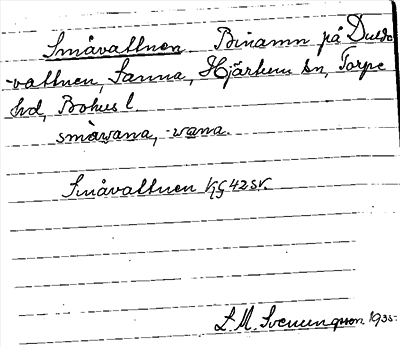 Småvattnen Binamn på Duvdo
-vattnen, Sanna, Hjärtum sn, Torpe
hd, Bohus l.
småvana, -vana.
Småvattnen KG 42 sv.
L.M. Svenungsson 1935.